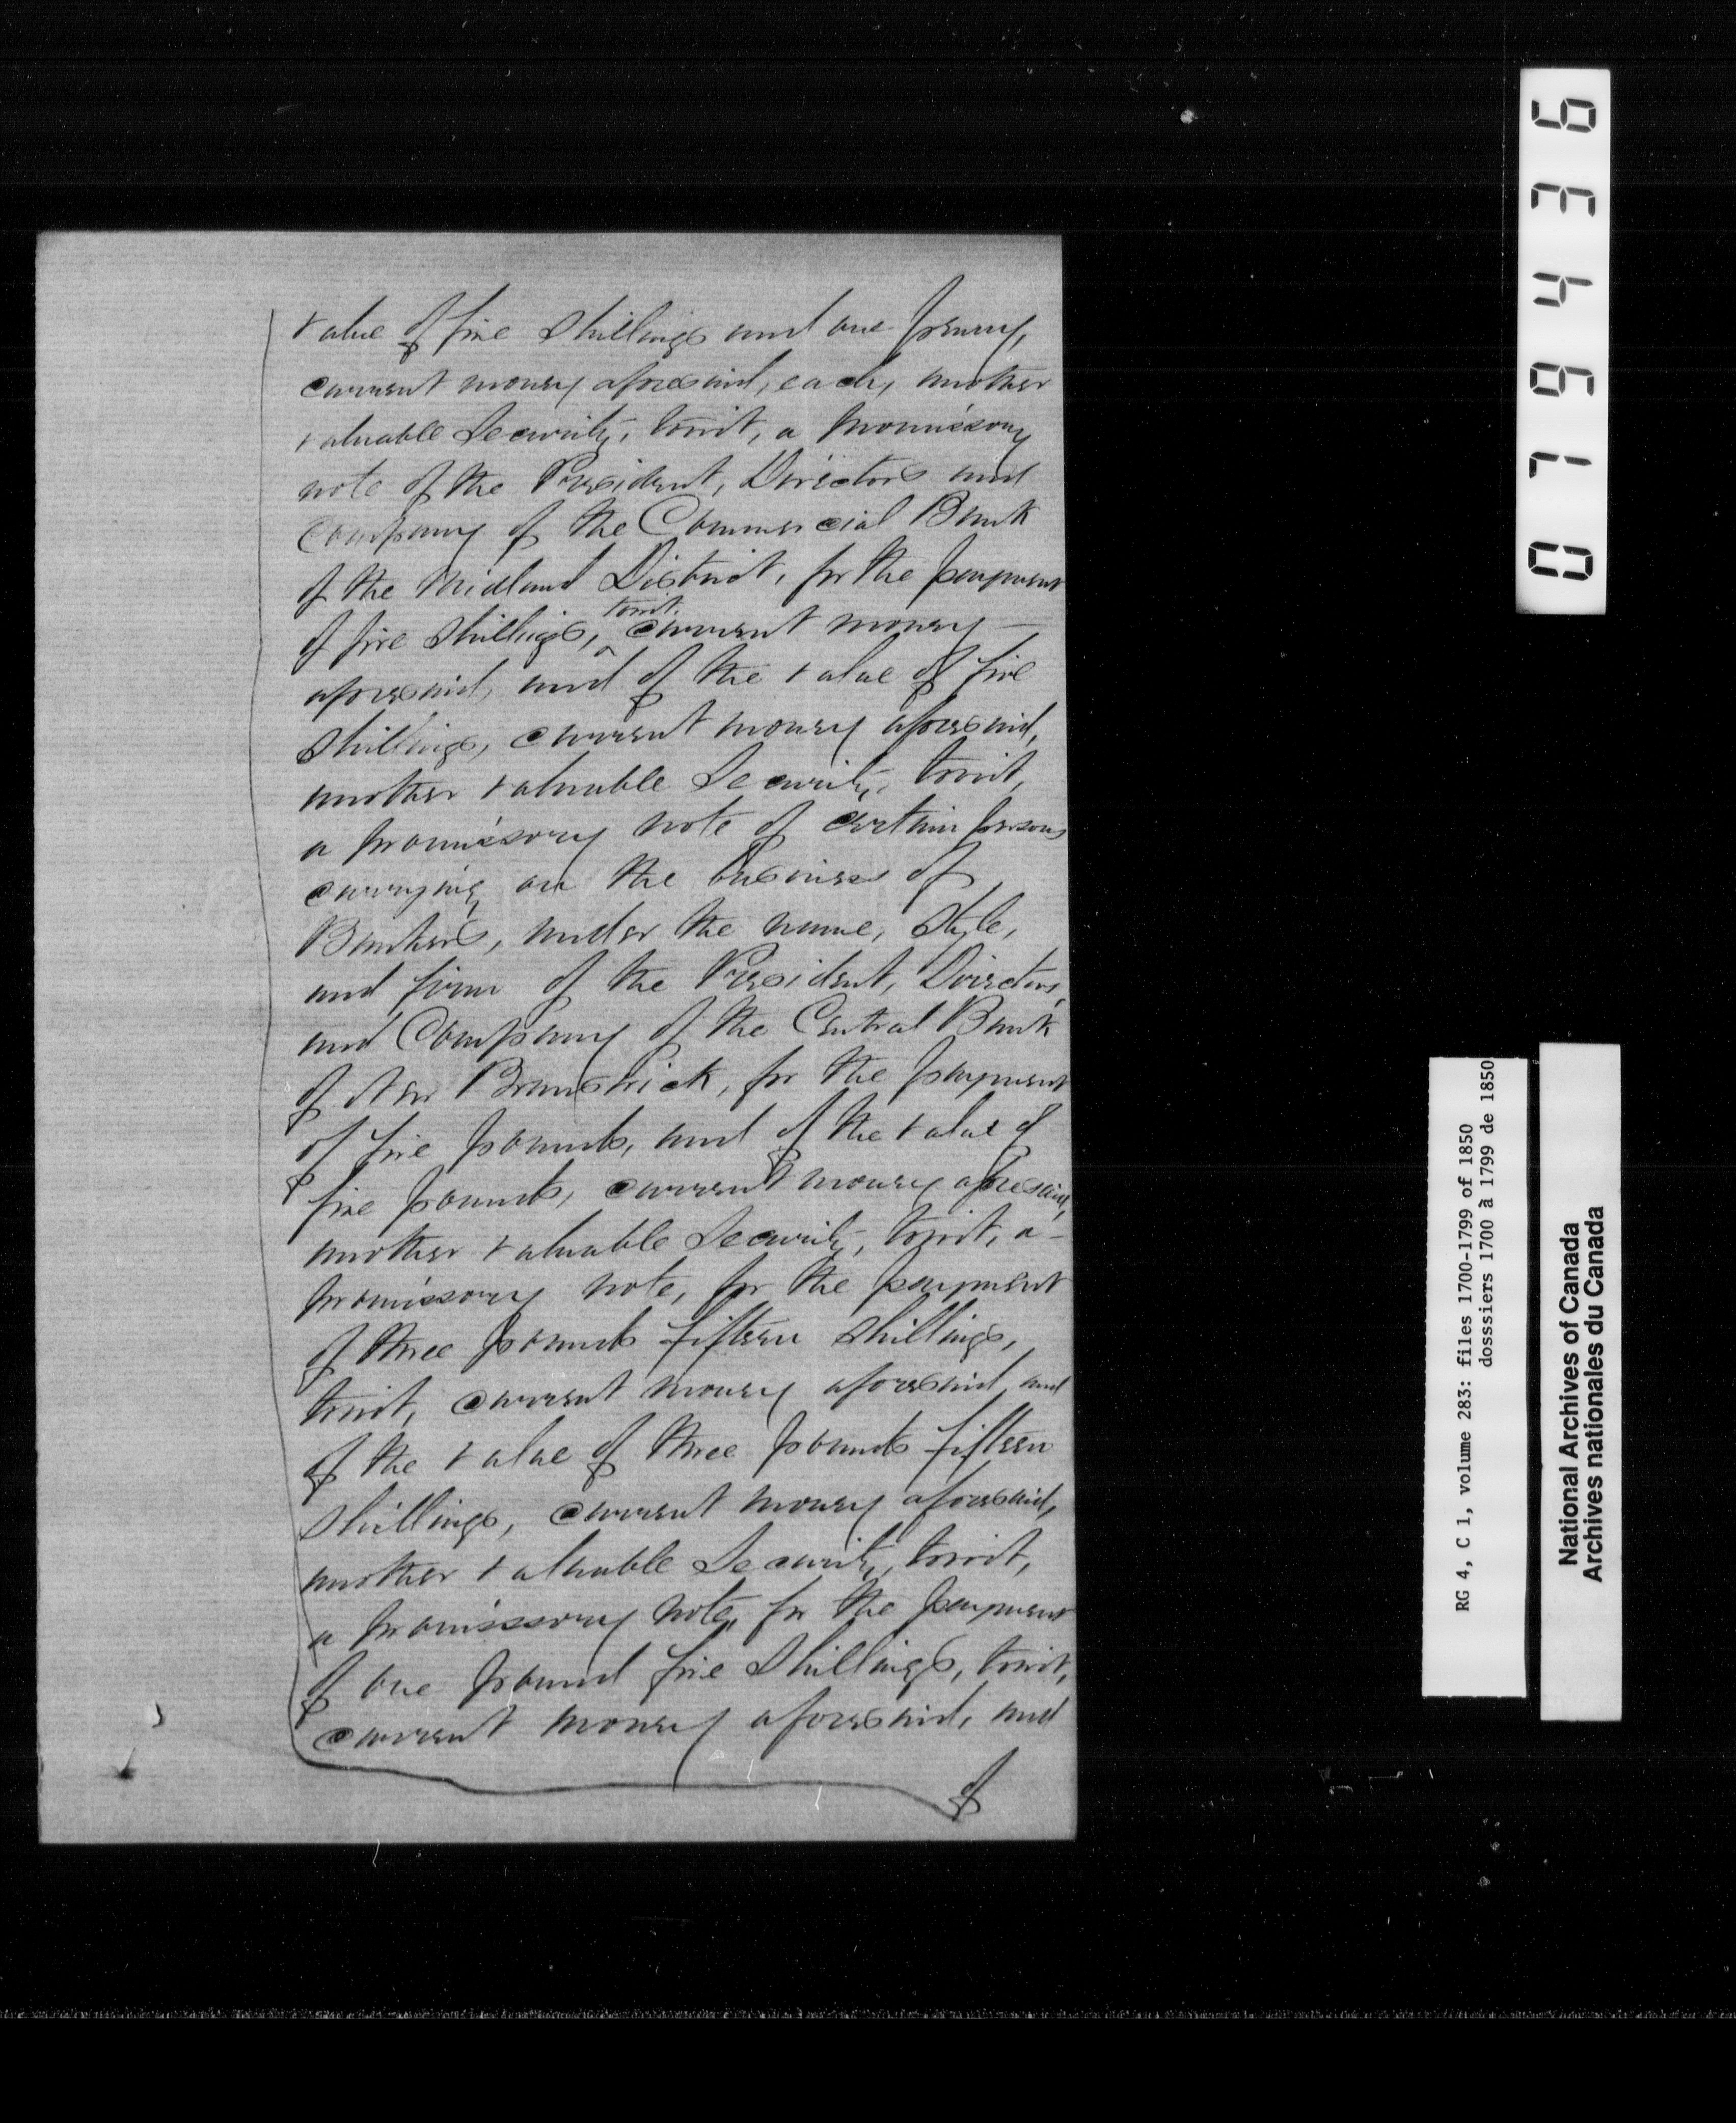 value of five shillings and one penny,
current money aforesaid, each, another
valuable security, towit, a promissory
note of the President, Directors and
Company of the Commercial Bank
of the Midland District, for the payment
towit.
of five shillings, ^ current money —
aforesaid, and of the value of five
shillings, current money aforesaid,
another valuable security, towit,
a promissory note of certain persons
carrying on the business of
Bankers, under the name, style,
and firm of the President, Directors,
and Company of the Central Bank
of New Brunswick, for the payment
of five pounds, and of the value of
five pounds, current money aforesaid,
another valuable security, towit, a -
promissory note, for the payment
of three pounds fifteen shillings,
towit, current money aforesaid, and
of the value of three pounds fifteen
shillings, current money aforesaid,
another valuable security, towit,
a promissory note, for the payment
of one pound five shillings, towit,
current money aforesaid, and
of
079436
RG 4, C 1, volume 283: files 1700-1799 of 1850
dosssiers 1700 à 1799 de 1850
National Archives of Canada
Archives nationales du Canada